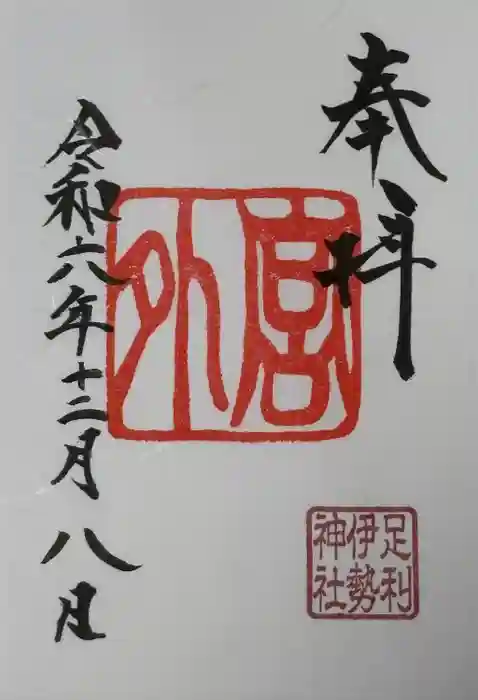 奉拝
外宮
令和六年十二月八日
足利
伊勢
神社